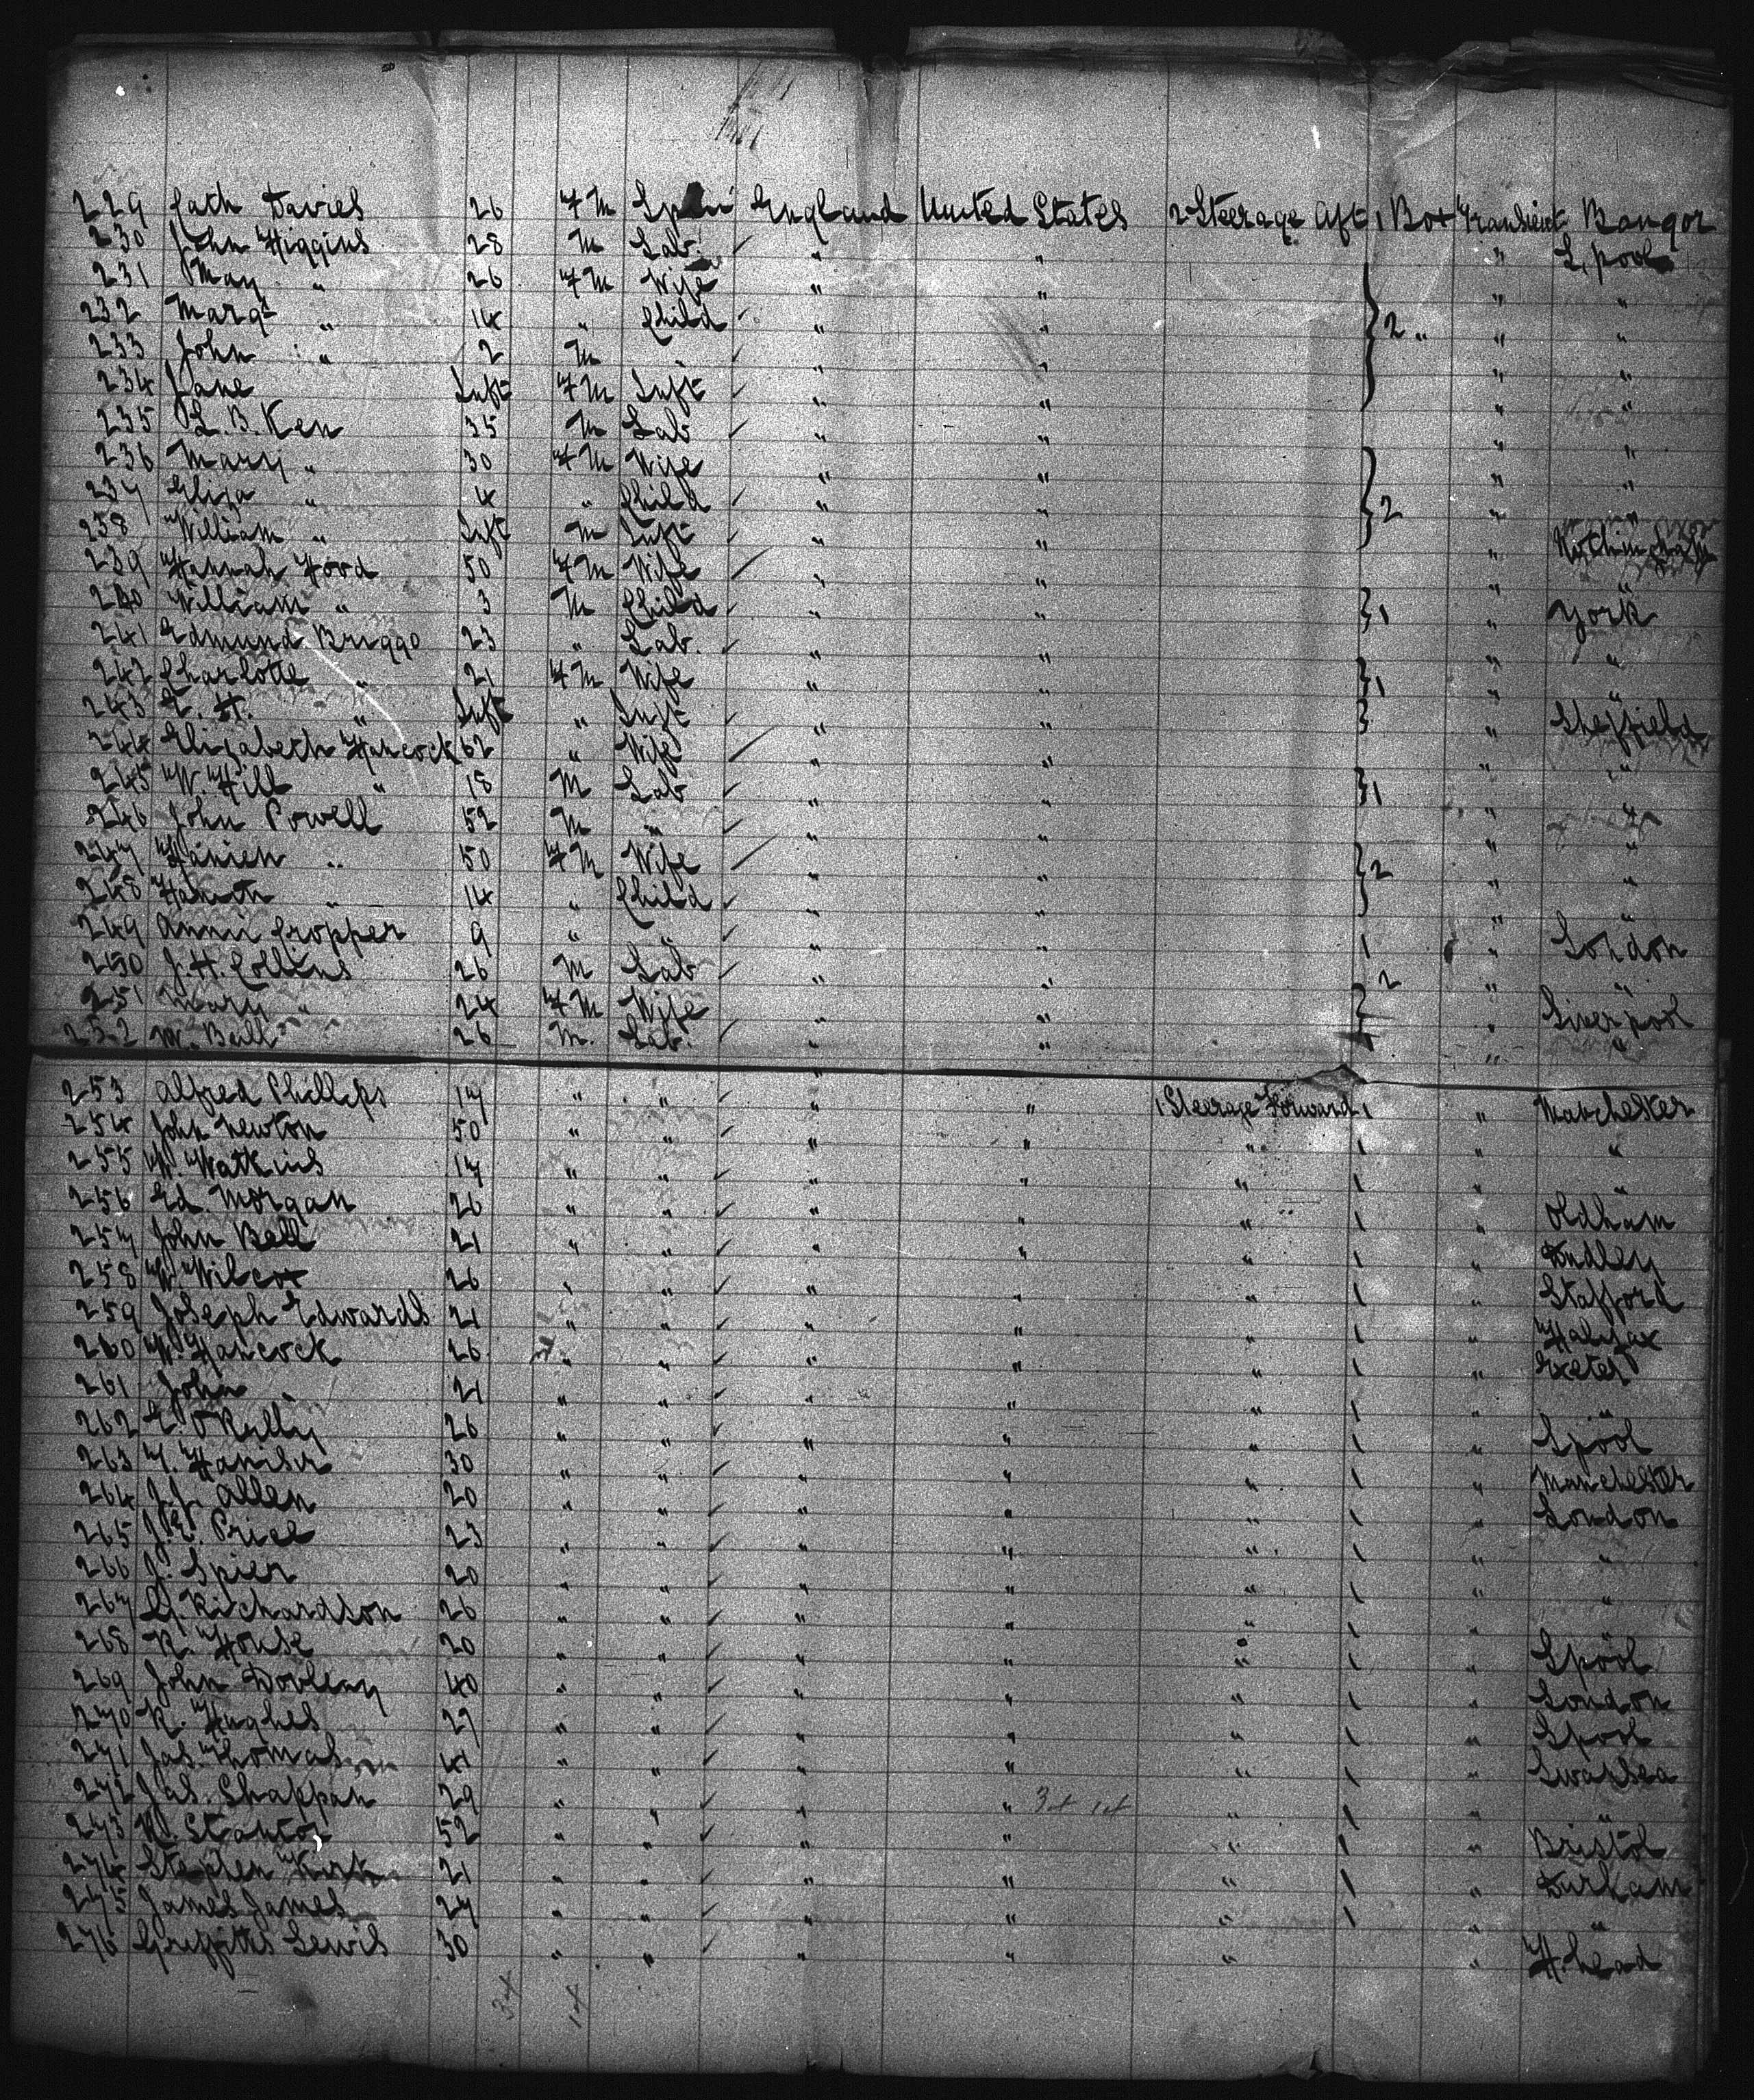 229 Cath Davies 26 FM England United States 2 Steerage Aft 1 Box Transient Bangor
230 John Higgins 28 M Lab. " " " L.pool
231 May " 26 FM Wife " " " "
232 Margt " 14 " Child " " } 2 " " "
233 John " 2 M " " " " "
234 Jane Inft FM Inft " " " "
235 L. B. Ken 35 M Lab " " " "
236 Mary " 30 FM Wife " " " "
237 Eliza " 4 " Child " " } 2 " "
238 William " Inft M Inft " " "
239 Hannah Hood 50 FM Wife " " " "
240 William " 3 M Child " " } 1 " York
241 Edmund Briggs 23 " Lab. " " " "
242 Charlotte " 21 FM Wife " " } 1 " "
243 E. H. " Inft " Inft " " } " Sheffield
244 Elizabeth Hancock 62 " Wife " " " "
245 W. Hill " 18 M Lab " " } 1 " "
246 John Powell 52 M " " " " "
247 " 50 FM Wife " " } 2 " "
248 " 14 " Child " " " "
249 Annie Cropper 9 " " " " 1 " London
250 J. H. Collins 26 M Lab " " 2 " "
251 Mary " 24 FM Wife " " } " Liverpool
252 M. Bell 26 M. Lab. " " " "
253 Alfred Phillips 17 " " " " 1 Steerage Forward 1 " Manchester
254 John Newton 50 " " " " " 1 " "
255 W. Watkins 17 " " " " " 1 " "
256 Ed. Morgan 26 " " " " " 1 " Oldham
257 John Bell 21 " " " " " 1 " Dudley
258 W. Wilcox 26 " " " " " 1 " Stafford
259 Joseph Edwards 21 " " " " " 1 " Halifax
260 W. Hancock 26 " " " " " 1 " Exeter
261 John " 21 " " " " " 1 " "
262 E. O'Kelly 26 " " " " " 1 " Lpool
263 30 " " " " " 1 " Manchester
264 J. J. Allen 20 " " " " " 1 " London
265 J. E. Price 23 " " " " " 1 " "
266 J. Spier 20 " " " " " 1 " "
267 G. Richardson 26 " " " " " 1 " "
268 R. House 20 " " " " " 1 " Lpool
269 John 40 " " " " " 1 " London
270 R. Hughes 27 " " " " " 1 " Lpool
271 Jas. Thomas 41 " " " " " 1 " Swansea
272 Jas. Chappan 29 " " " " " 1 " "
273 R. Stanton 52 " " " " " 1 " Bristol
274 Stephen Kirk 21 " " " " " 1 " Durham
275 James James 27 " " " " " 1 " "
276 Griffiths Lewis 30 " " " " " " H.head